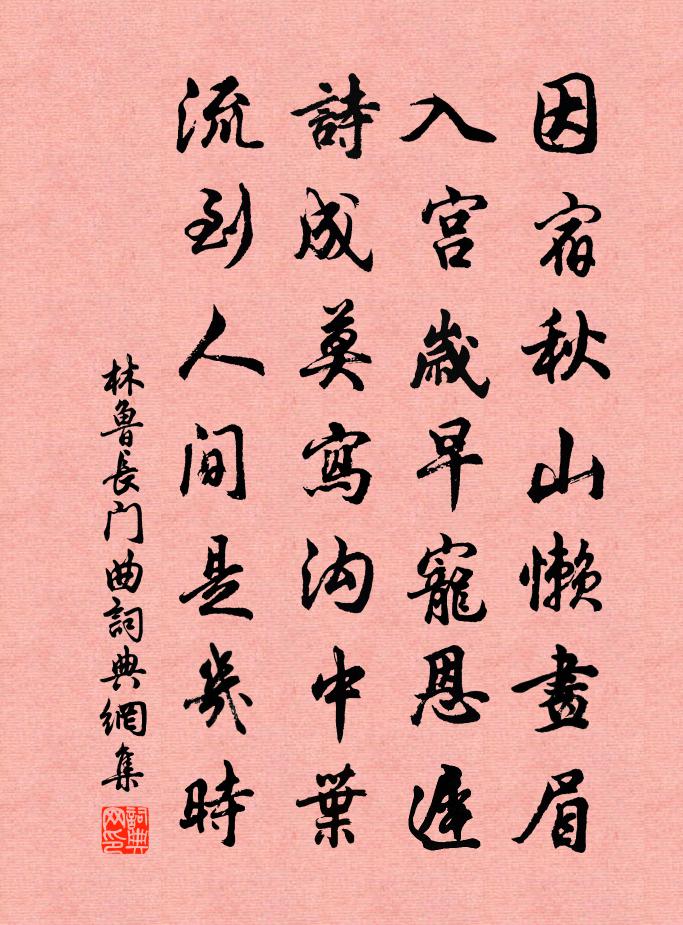 因宿秋山懒畫眉
入宫歲早寵恩遲
詩成莫寫沟中葉
流到人间是幾時
林魯長门曲詞典網集
詞典网印